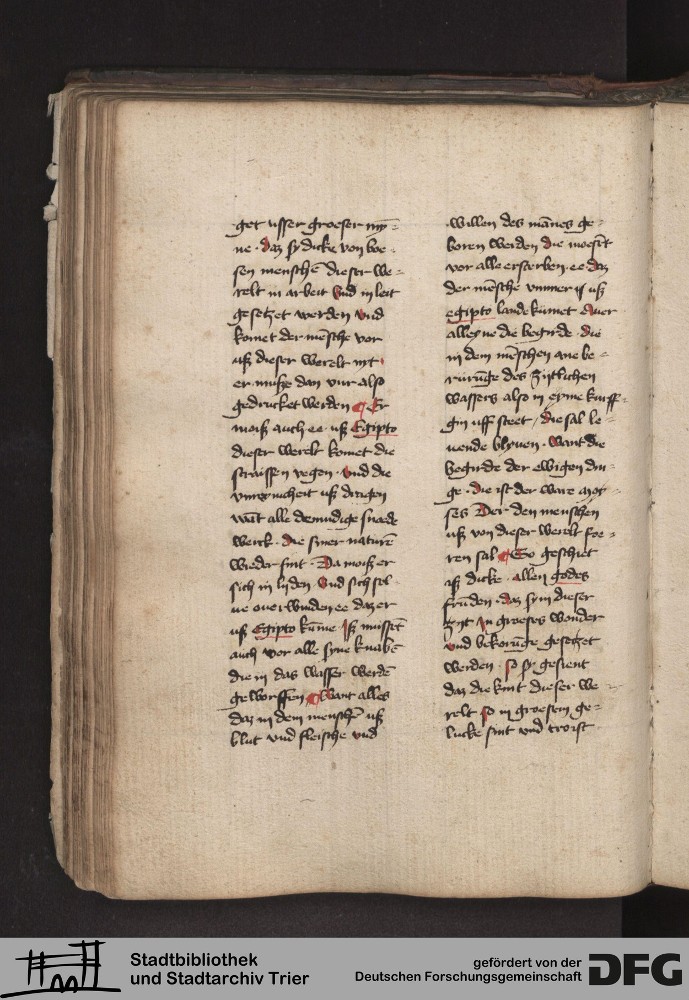 get usser groeser my=
ne · daz sy dicke von boe=
sen menschē dieser we=
relt in arbeit vnd in leit
gesetzet werden vnd
komet der mēsche vor
uß dieser werelt nyt
er musze dan vur also
gedrucket werden Er
moiß auch ee uß Egipto
dieser werelt komet die
straissen vegen · vnd die
vnreynicheit uß dregen
wāt alle demudige snoede
werck · die syner naturē
wieder sint · Da moiß er
sich in lyden vnd sich sel
ue ouerwinden ee daz er
uß Egipto kūme · Iß mussēt
auch vor alle syne knabē
die in das wasser werdē
geworffen Want alles
daz in dem menschē uß
blut vnd fleische vnd
willen des mānes ge=
boren werden die moeszēt
vor alle ersterben · ee daz
der mēsche vmmer uß
egipto lande kūmet Auer
alleyne die begirde · die
in dem mēschen ane be=
rurūge des zytlichen
wassers also in eyme
gin uff steet / die sal le=
uende blyuen · want die
begirde der ewigen din=
ge · die ist der ware moy=
ses Der den menschen
uß von dieser werelt foe=
ren sal So geschiet
iß dicke · allen godes
frūden · daz sy in dieser
zyt in groeses wonder
vnd bekorūge gesetzet
werden · so sy sient
daz die kint dieser we=
relt so in groesem ge=
lucke sint vnd troist
Stadtbibliothek
und Stadtarchiv Trier
gefördert von der
Deutschen Forschungsgemeinschaft
DFG